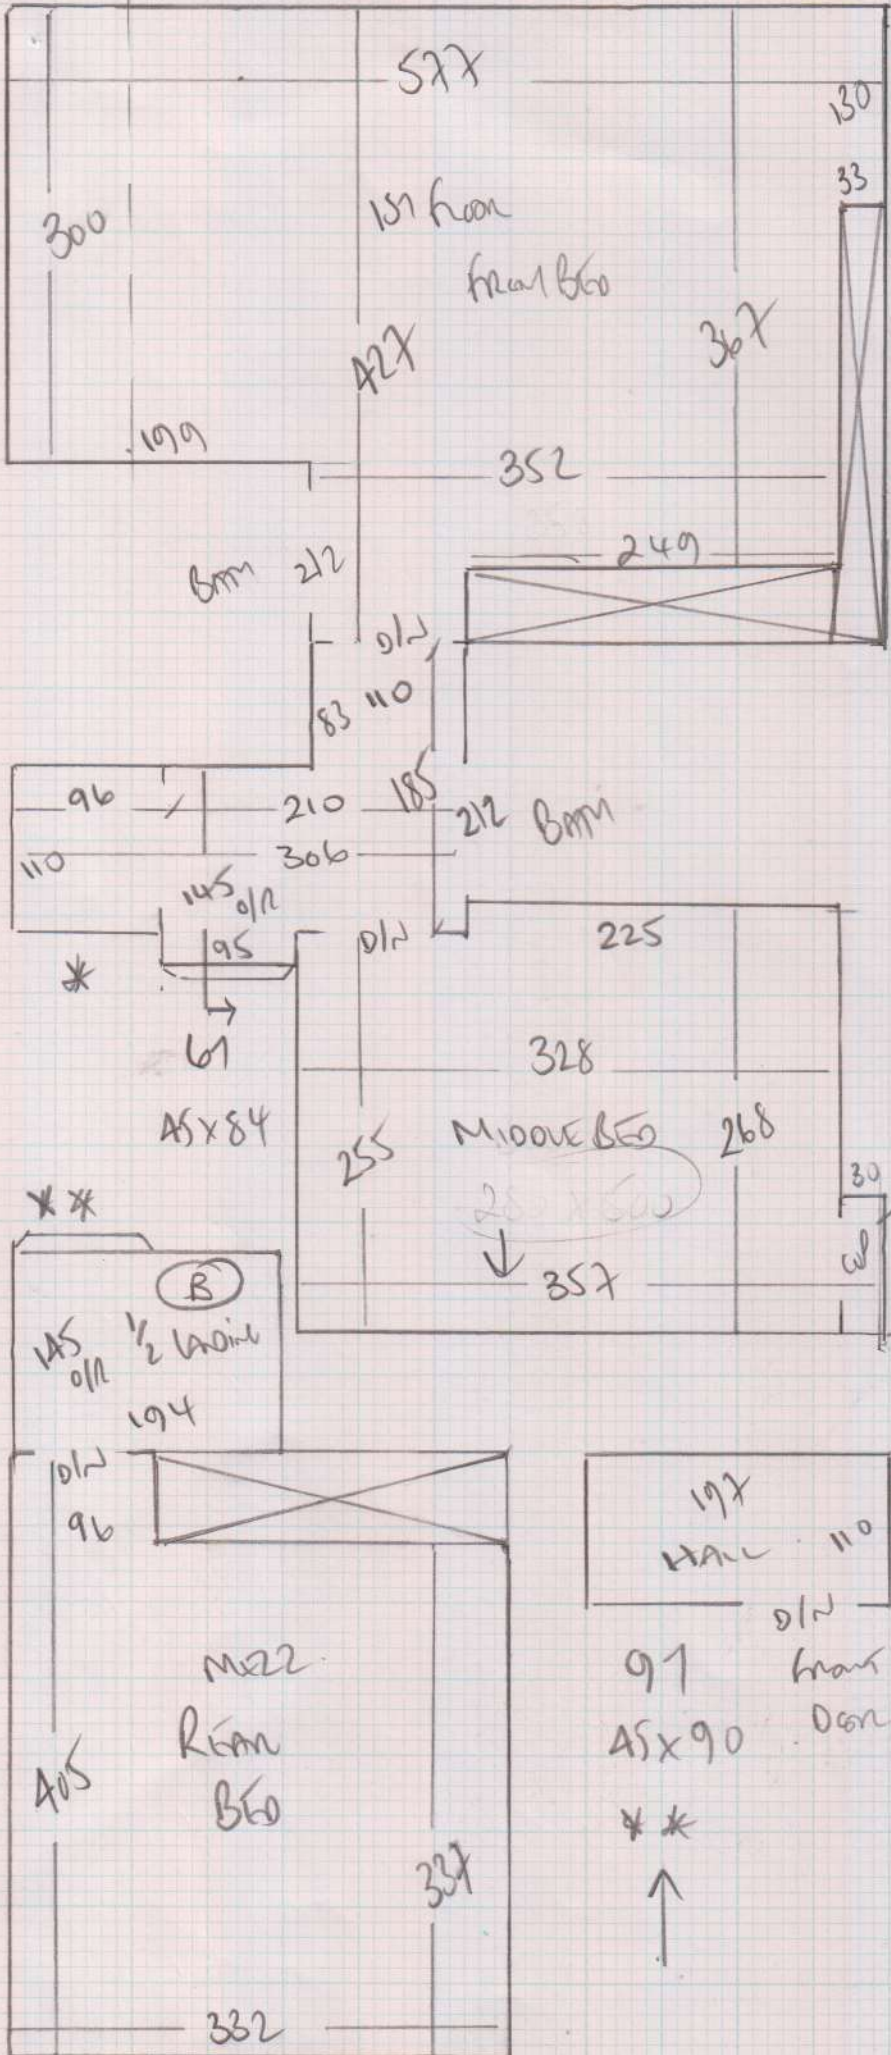 577
130
33
300
1ST FLOOR
FRONT BED
427
367
199
352
249
BATH
212
D/N
83
110
96
210
185
212
BATH
306
110
145
O/R
D/N
95
225
*
61
45 X 84
328
255
MIDDLE BED
268
30
357
**
B
145
O/R
1/2 LANDING
194
D/N
96
197
HALL
110
D/N
FRONT
DOOR
91
45 X 90
**
MEZZ
REAR
BED
405
337
332